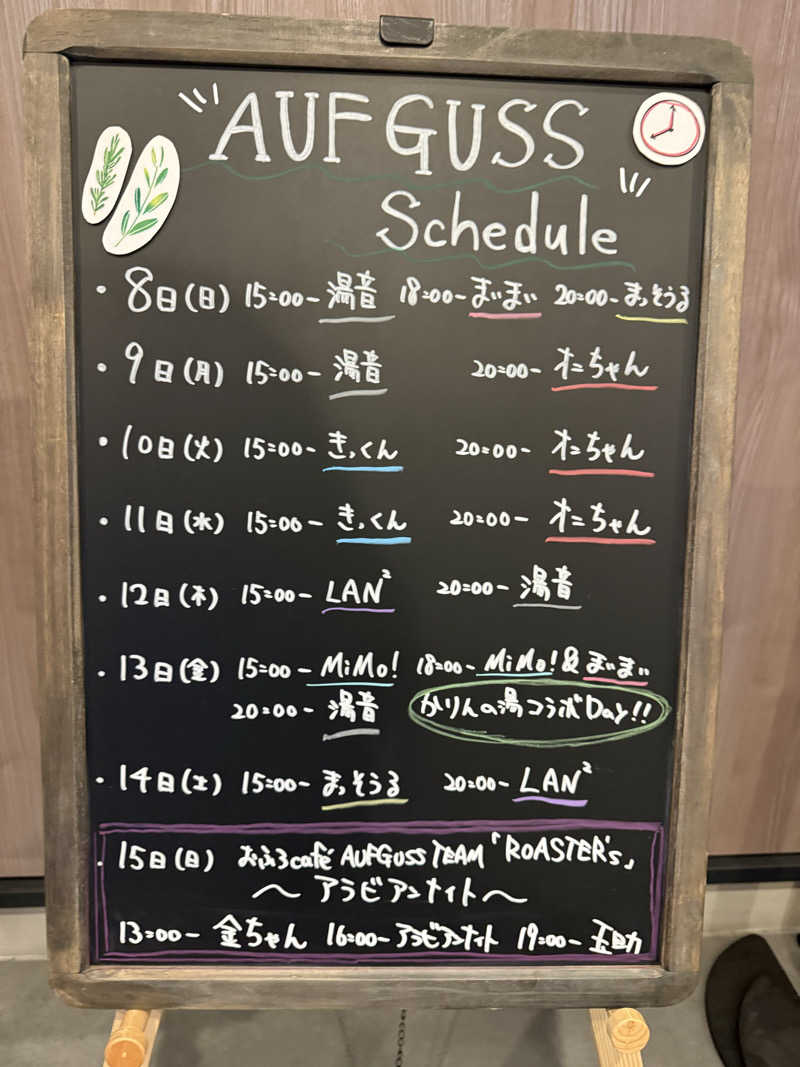 AUFGUSS
Schedule
・8日(日) 15:00- 湯音 18:00- まいまい 20:00- まっそうる
・9日(月) 15:00- 湯音 20:00- オニちゃん
・10日(火) 15:00- きっくん 20:00- オニちゃん
・11日(水) 15:00- きっくん 20:00- オニちゃん
・12日(木) 15:00- LAN² 20:00- 湯音
・13日(金) 15:00- MiMo! 18:00- MiMo!&まいまい
20:00- 湯音 かりんの湯コラボDay!!
・14日(土) 15:00- まっそうる 20:00- LAN²
・15日(日) おふろcafé AUFGUSS TEAM「ROASTER's」
～アラビアンナイト～
13:00- 金ちゃん 16:00- アラビアンナイト 19:00- 五助